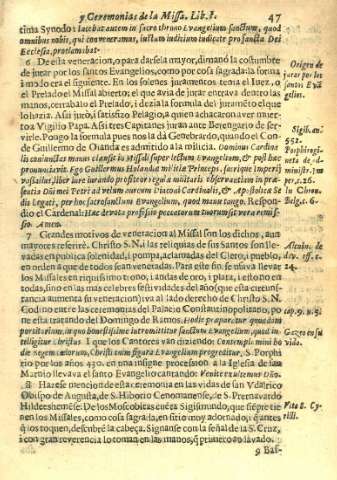 y Ceremonias de la Missa. Lib. I. 47
tima Synodo: Iacebat autem in sacro throno Evangelium sanctum, quod
omnibus nobis, qui conveneramus, iustum iudicium iudicate pro sancta Dei
Ecclesia, proclamabat.
6 De esta veneracion, o para darsela mayor, dimanò la costumbre
de jurar por los santos Evangelios, como por cosa sagrada: la forma
i modo lo era entonces. En los solenes juramentos, tenia el Juez, o
el Prelado el Missal abierto; el que avia de jurar entrava dentro las
manos, cerravalo el Prelado, i dezia la formula del juramẽto el que
lo hazia. Assi jurò, i satisfizo Pelagio, a quien achacaron aver muer-
to a Vigilio Papa. Assi tres Capitanes juran ante Berengario de ser-
virle. Pongo la formula pues nos la dà Genebrardo, quando el Con-
de Guillermo de Olanda es admitido a la milicia. Dominus Cardina-
lis coniunctas manus clausit in Missali super lectum Evangelium, & post hæc
pronunciavit. Ego Guillermus Holandiæ militiæ Princeps, sacrique imperij
vassallus, liber iure iurando profiteor regulæ militaris observationem in præ-
sentia Domini Petri ad velum aureum Diaconi Cardinalis, & Apostolicæ Se-
dis Legati, per hoc sacrosanctum Evangelium, quod manu tango. Respon-
dio el Cardenal: Hæc devota professio peccatorum tuorum sit vera remis-
sio. Amen.
7 Grandes motivos de veneracion al Missal son los dichos, aun
mayores referirè. Christo S.N. i las reliquias de sus Santos son lle-
vadas en publica solenidad, i pompa, aclamadas del Clero, i pueblo,
en orden a que de todos sean veneradas. Para este fin se usava llevar
los Missales en riquissimo trono, i andas de oro, i plata, i esto no en
todas, sino en las mas celebres festividades del año (que esta circun-
stancia aumenta su veneracion) iva al lado derecho de Christo S.N.
Codino entre las ceremonias del Palacio Constantinopolitano, po-
ne esta tratando del Domingo de Ramos.
portitorium, in quo honestissime intromittitur sanctum Evangelium, quod in-
telligitur Christus. I que los Cantores van diziendo:
S. Porphi-
rio por los años 430. en una insigne procession a la Iglesia de san
Martin llevava el santo Evangelio cantando: Venite exultemus Dño.
8 Hazese mencion de esta ceremonia en las vidas de san Vdalrico
Obispo de Augusta, de S. Hiborio Cenomanense, de S. Brernavardo
Hildeeshemẽse: De los Moscobitas cuẽta Sigismundo, que siẽpre tie-
nen los Missales, como cosa sagrada, en sitio muy adornado; i quantas
q̃ los toquen, descubrẽ la cabeça. Signanse con la señal de la S. Cruz,
i con gran reverencia lo toman en las manos, q̃ primero an lavado.
9 Bas-
Origen de
jurar por los
santos Evã-
gelios.
Sigis. an.
552.
Porphirog.
Lu Chron.
Belg. c. 6-
Alcuin. de
div. off. c.
24.
cap. 9. n. 5.
Vita S. Cy-
rilli.